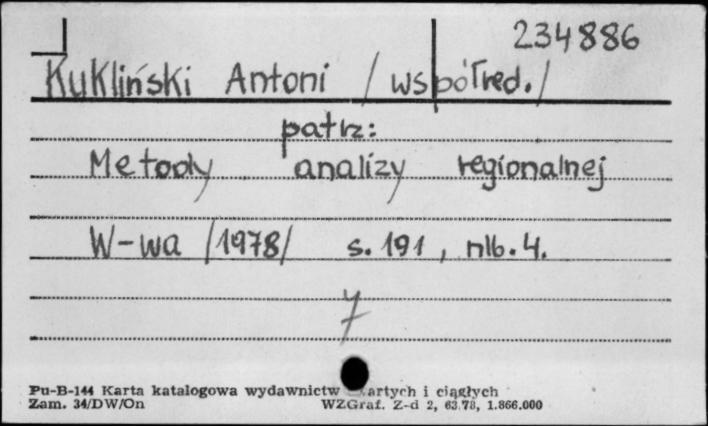 234886
Kukliński Antoni / współred./
patrz:
Metody analizy regionalnej
W-wa /1978/ s. 191, nlb. 4.
7
Pu-B-144 Karta katalogowa wydawnictw i ciągłych
Zam. 34/DW/On WZGraf. Z-d 2, 63.78, 1.866.000